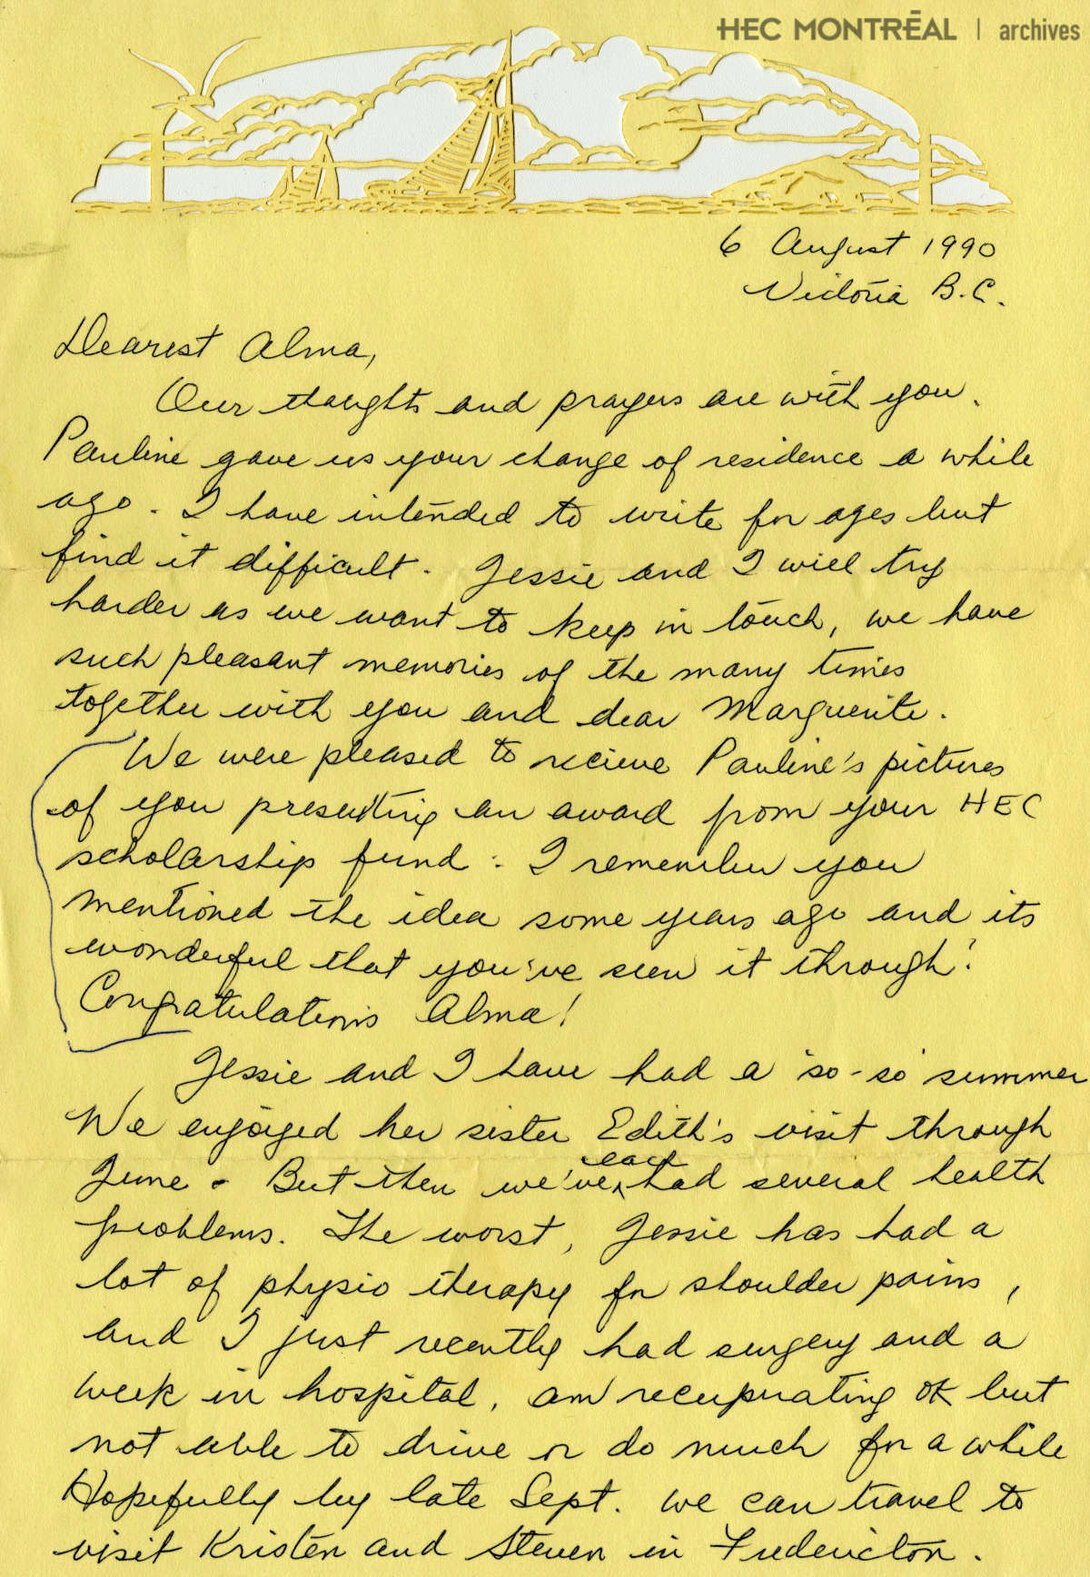 HEC MONTRÉAL | archives
6 August 1990
Victoria B.C.
Dearest Alma,
Our thoughts and prayers are with you.
Pauline gave us your change of residence a while
ago. I have intended to write for ages but
find it difficult. Jessie and I will try
harder as we want to keep in touch, we have
such pleasant memories of the many times
together with you and dear Marguerite.
We were pleased to recieve Pauline's pictures
of you presenting an award from your HEC
scholarship fund. I remember you
mentioned the idea some years ago and its
wonderful that you've seen it through!
Congratulations Alma!
Jessie and I have had a 'so-so' summer
We enjoyed her sister Edith's visit through
June. But then we've each had several health
problems. The worst, Jessie has had a
lot of physio therapy for shoulder pains,
and I just recently had surgery and a
week in hospital, am recuperating OK but
not able to drive or do much for a while
Hopefully by late Sept. we can travel to
visit Kristen and Steven in Fredericton.